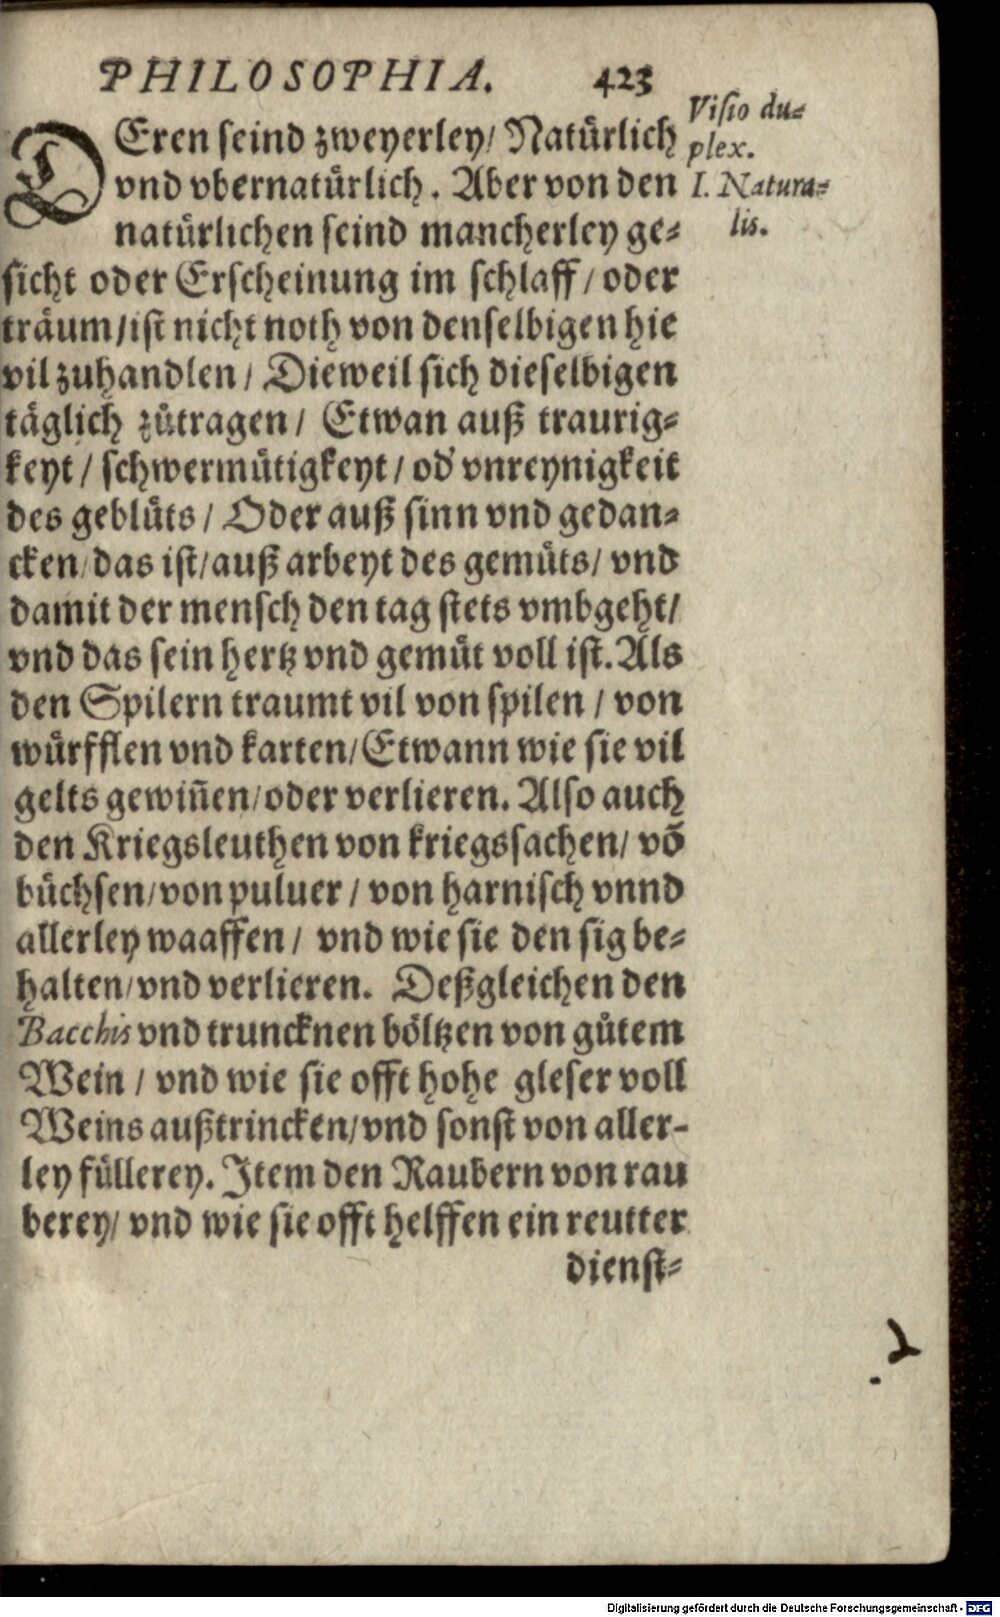 PHILOSOPHIA. 423
Visio du⸗
plex.
I. Natura⸗
lis.
DEren seind zweyerley/ Natürlich
vnd vbernatürlich. Aber von den
natürlichen seind mancherley ge⸗
sicht oder Erscheinung im schlaff/ oder
träum/ist nicht noth von denselbigen hie
vil zuhandlen/ Dieweil sich dieselbigen
täglich zůtragen/ Etwan auß traurig⸗
keyt/ schwermütigkeyt/ od' vnreynigkeit
des geblůts/ Oder auß sinn vnd gedan⸗
cken/das ist/auß arbeyt des gemůts/ vnd
damit der mensch den tag stets vmbgeht/
vnd das sein hertz vnd gemůt voll ist. Als
den Spilern traumt vil von spilen/ von
würfflen vnd karten/Etwann wie sie vil
gelts gewiñen/oder verlieren. Also auch
den Kriegsleuthen von kriegssachen/ võ
büchsen/von puluer/ von harnisch vnnd
allerley waaffen/ vnd wie sie den sig be⸗
halten/vnd verlieren. Deßgleichen den
Bacchis vnd truncknen böltzen von gůtem
Wein/ vnd wie sie offt hohe gleser voll
Weins außtrincken/vnd sonst von aller-
ley füllerey. Item den Raubern von rau
berey/ vnd wie sie offt helffen ein reutter
dienst⸗
Digitalisierung gefördert durch die Deutsche Forschungsgemeinschaft - DFG